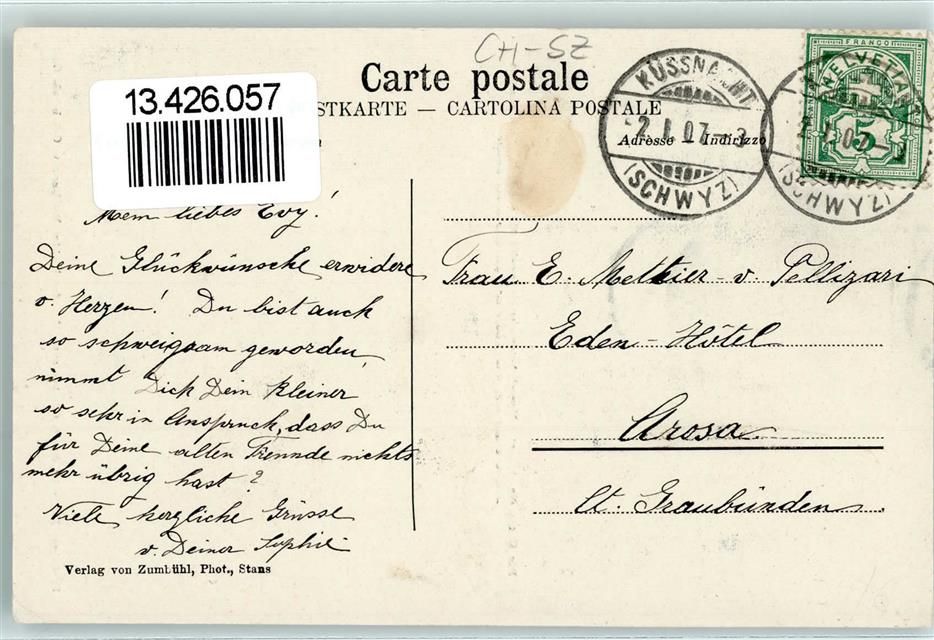 CH-SZ
Carte postale
13.426.057
STKARTE — CARTOLINA POSTALE
KÜSSNACHT
2.I.07.-3
(SCHWYZ)
FRANCO
HELVETIA
5
07.
(SCHWYZ)
Adresse - Indirizzo
Mein liebes Evy!
Deine Glückwünsche erwidere
v. Herzen! Du bist auch
so schweigsam geworden,
nimmt Dich Dein kleiner
so sehr in Anspruch, dass Du
für Deine alten Freunde nichts
mehr übrig hast?
Viele herzliche Grüsse
v. Deiner Sophie
Verlag von Zumbühl, Phot., Stans
Frau E. Methier-v. Pellizari
Eden-Hôtel
Arosa
Ct. Graubünden.